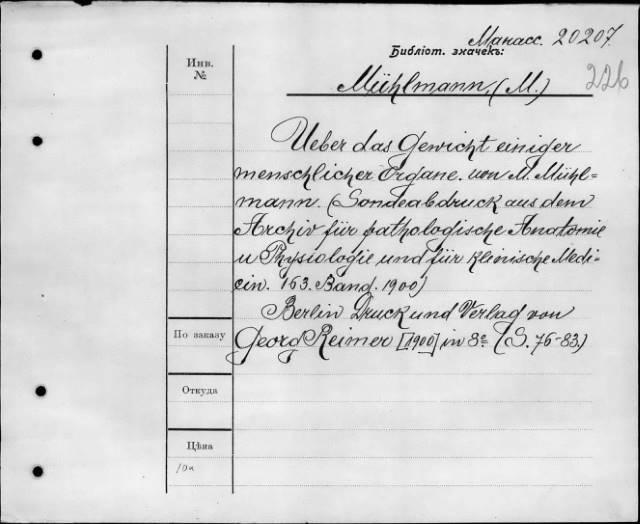 Манасс. 20207.
Библіот. значекъ:
226
Инв. №
Mühlmann, (M.)
Ueber das Gewicht einiger
menschlicher Organe. von M. Mühl=
mann. (Sondeabdruck aus dem
Archiv für pathologische Anatomie
u Physiologie und für klinische Medi-
cin. 163. Band. 1900)
Berlin Druck und Verlag von
Georg Reimer [1900] in 8º (S. 76-83.)
По заказу
Откуда
Цѣна